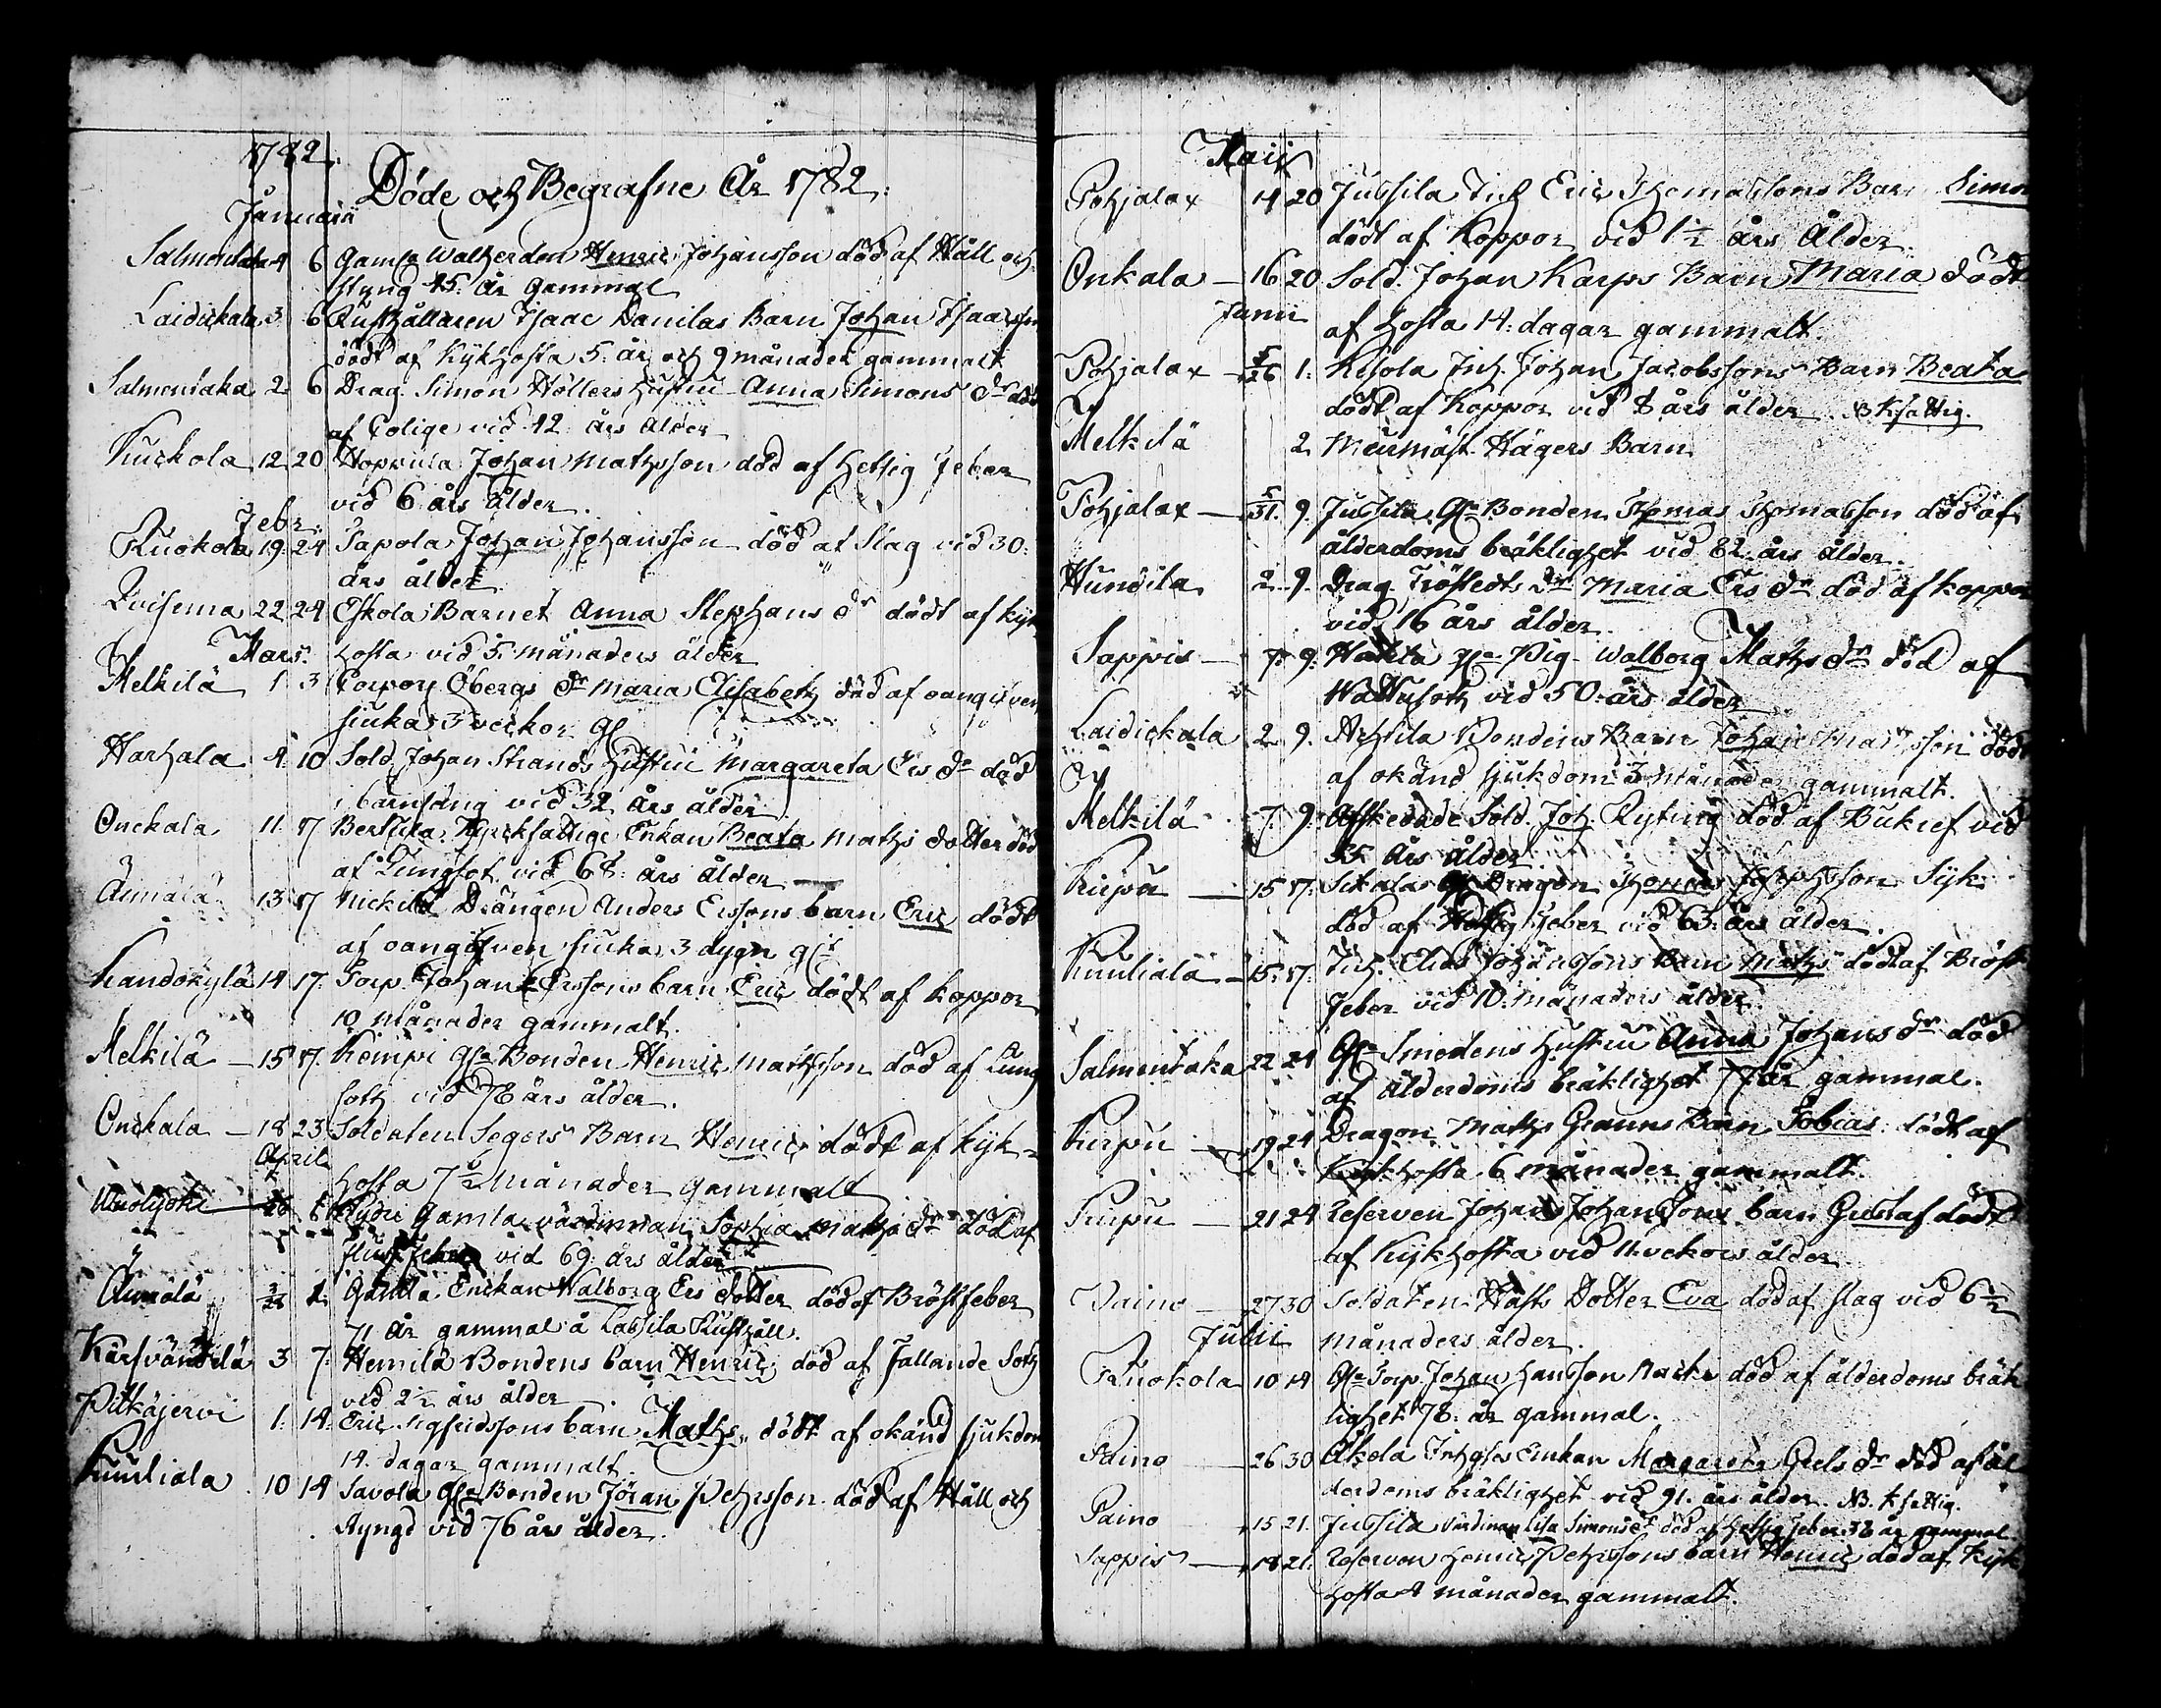 1782.
Döde och Begrafne År 1782.
Januarii
Salmentaka 4 6 Gamla Walherden Henric Johansson död af Håll och
styng 45. år gammal
Laidickala 3 6 Rusthållaren Isaac Danilas Barn Johan Isaacsson
dödt af Kikhosta 5. år och 9 månader gammalt
Salmentaka 2 6 Drag. Simon Höllers Hustru Anna Simons dr död
af Colique vid 42 års ålder
Kuckola 12 20 Johan Mathsson död af hetsig feber
vid 6 års ålder.
Febr.
Kuokola 19 24 Papola Johan Johansson död af Slag vid 30.
års ålder.
22 24 Eskola Barnet Anna Stephans dr dödt af kyk
hosta vid 5. månaders ålder
Mars.
Melkilä 1 3 Corpor. Öbergs dr Maria Elisabeth död af oangifven
siuka 3 veckor gl
Harhala 4 10 Sold. Johan Strands Hustru Margareta Ers dr död
i barnsäng vid 32 års ålder
Onckala 11 17 Berttila Kyrckfattige Enkan Beata Maths dotter död
af Lungsot vid 68. års ålder
Äimälä 13 17 Drängen Anders Erssons barn Eric dödt
af oangifven siuka 3 dygn glt
Kandokylä 14 17. Torp. Johan Erssons barn Eric dödt af Koppor
10 månader gammalt.
Melkilä 15 17. Kemppi Gle Bonden Henric Mathsson död af Lung
soth vid 78 års ålder.
Onckala 18 23 Soldaten Segers Barn Henric dödt af Kyk-
hosta 7 1/2 månader gammalt
April
6 Gamla värdinnan Sophia Maths dr död af
feber vid 69. års ålder
Äimälä 3/28 1. Gamla Enckan Walborg Ers dotter död af Bröstfeber
71 År gammal å Lassila Rusthåll.
Kärfvändelä 3 7. Hemilä Bondens barn Henric död af Fallande Soth
vid 2 1/2 års ålder
Pitkäjervi 1. 14. Eric Sigfridssons barn Maths dödt af okänd sjukdom
14. dagar gammalt.
Kuuliala 10 14 Savola Gle Bonden Jöran Pehrsson död af Håll och
Styngd vid 76 års ålder.
Maii
Pohjalax 14 20 Jussila Inh. Eric Thomassons Barn Simon
dödt af Koppor vid 1 1/2 års Ålder.
Onkala 16 20 Sold. Johan Karps Barn Maria dödt
af hosta 14. dagar gammalt.
Junii
Pohjalax 5/26 1. Kesola Inh. Johan Jacobssons Barn Beata
dödt af Koppor vid 8 års ålder. NB Kfattig.
Melkilä 2 Murmäst. Hägers Barn
Pohjalax 5/31. 9. Jussila Gle Bonden Thomas Thomasson död af
ålderdoms bräklighet vid 82 års ålder.
Hundila 2 9. Drag. Tröstedts Dr Maria Ers dr död af koppor
vid 16 års ålder.
Sappis 7. 9. Gle Pig. Walborg Maths dr död af
Wattusoth vid 50 års ålder
Laidickala 2 9. Bondens Barn Johan Mathsson dödt
af okänd sjukdom 3 månader gammalt.
Melkilä 7. 9. Afskedade Sold. Joh. Ryting död af Bukref vid
55 års ålder
Kurpu 15 17. Sikala Gle Dragon Thomas Josephsson Syk
död af Hetsig feber vid 63. års ålder.
Kuulialä 15. 17. Inh. Elias Johanssons Barn Maths dödt af Bröst
feber vid 10. månaders ålder.
Salmentaka 22 24 Gle Smedens Hustru Anna Johans dr död
af ålderdoms bräklighet 77 år gammal.
Kurpu 19 24 Dragon Maths Granns Barn Tobias dödt af
Kykhosta 6 månader gammalt.
Kurpu 21 24 Reserven Johan Johanssons barn Gustaf dödt
af Kykhosta vid 11. veckors ålder
Paino 27 30 Soldaten Hasts Dotter Eva död af slag vid 6 1/2
månaders ålder.
Julii
Kuokola 10 14 Gle Torp. Johan Hansson död af ålderdoms bräk
lighet 78. år gammal.
Paino 26 30 Äkela Enkan Margareta Grels dr död af ål
derdoms bräklighet vid 91. års ålder. NB. Kfattig.
Paino 15 21. Jussila värdinnan Lisa Simons dr död af Hetsig feber 38 år gammal
Sappis 18 21. Reserven Henric Pehrssons barn Henric död af Kyk
hosta 4 månader gammalt.